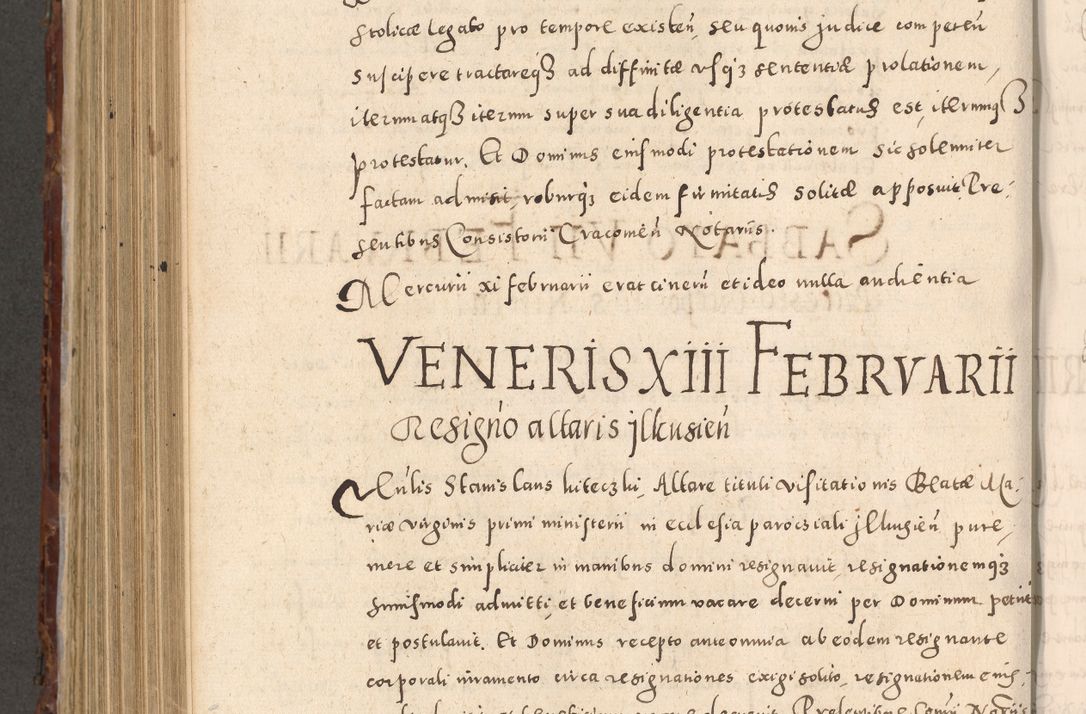 Stolicæ legato pro tempore existeñ, seu quouis judice competeñ
suscipere tractareqȝ ad diffinitæ vsqȝ sententiæ prolationem,
iterum atqȝ iterum super sua diligentia protestatus est, iterumqȝ
protestatur. Et Dominus eiusmodi protestationem sic solenniter
factam admisit, roburqȝ eidem firmitatis solitæ apposuit. Pre-
sentibus Consistorii Cracouieñ Notariis.
Mercurii xi februarii erat cinerũ et ideo nulla audiẽntia
VENERIS XIII FEBRVARII
Resigño altaris jlkusieñ
Stanislaus kiteczki, Altare tituli visitationis Beatæ Ma-
riæ virginis primi ministerii in ecclesia parocsiali jlkusieñ pure,
mere et simpliciter in manibus domini resignauit, resignationemqȝ
huiusmodi admitti, et beneficium vacare decerni per Dominum petiit
et postulauit. Et Dominus recepto ante omnia ab eodem resignante
corporali iuramento circa resignationes exigi solito, resignationem eius-